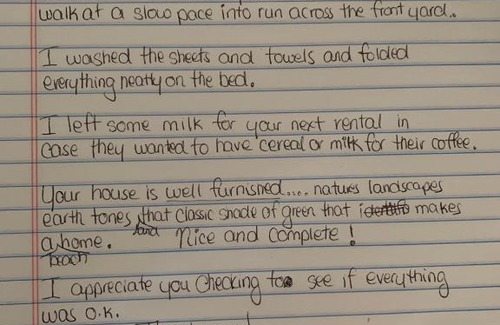 walk at a slow pace into run across the front yard..
I washed the sheets and towels and folded
everything neatly on the bed.
I left some milk for your next rental in
case they wanted to have cereal or milk for their coffee.
Your house is well furnished.... natures landscapes
earth tones, that classic shade of green that makes
a home. Nice and complete!
beach
I appreciate you checking to see if everything
was o.k.